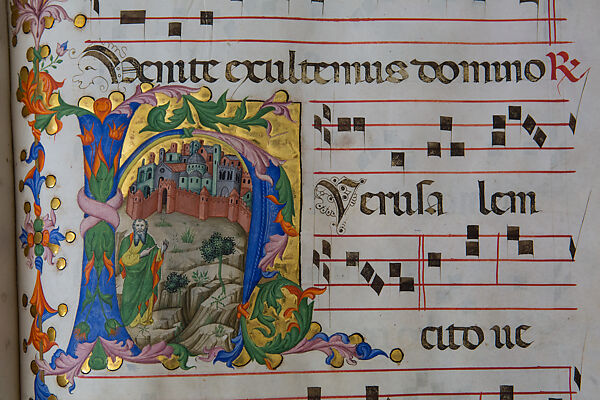 Venite exultemus domino R
H
Ierusa lem
cito ue